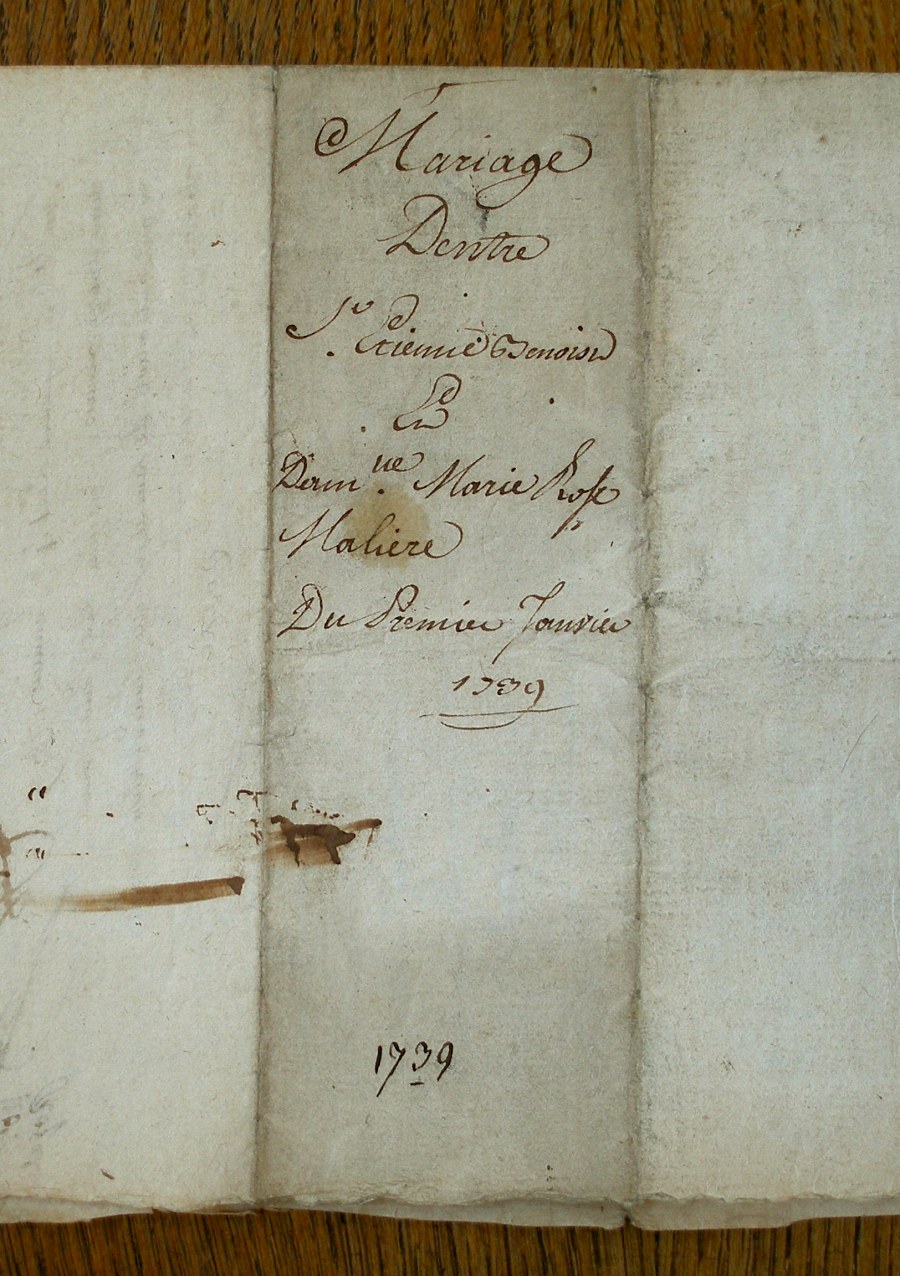 Mariage
Dentre
Sr Etienne Benoist
Et
Damlle Marie Rose
Maliere
Du Premier Janvier
1739
1739